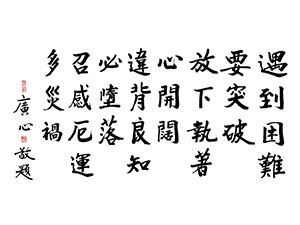 遇到困難
要突破
放下執著
心開闊
違背良知
必墮落
召感厄運
多災禍
廣心敬題